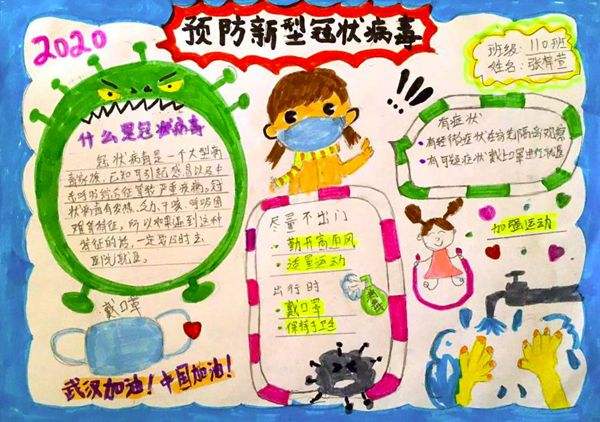 2020
预防新型冠状病毒
班级：110班
姓名：张
什么是冠状病毒
冠状病毒是一个大型病
毒家族，已知可引起感冒以及中
东呼吸综合征等较严重疾病。冠
状病毒有发烧、乏力、干咳、呼吸困
难等特征，所以如果遇到这种
特征的话，一定要及时去
医院就医。
有症状
有轻微症状在家先隔离观察
有可疑症状戴上口罩
尽量不出门
勤开窗通风
适量运动
出行时
戴口罩
保持手卫生
加强运动
戴口罩
武汉加油！中国加油！